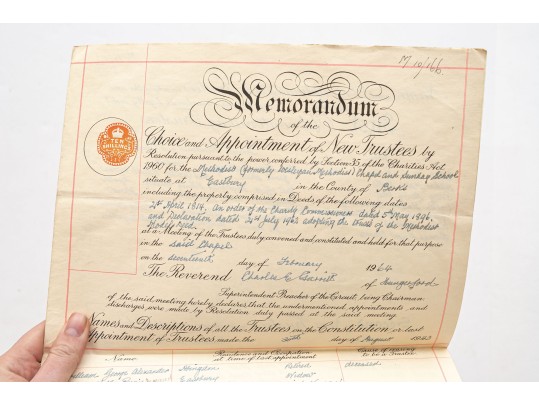 M 10/166
Memorandum
of the
TEN
SHILLINGS
Choice and Appointment of New Trustees by
Resolution pursuant to the power conferred by Section 35 of the Charities Act
1960 for the Methodist (formerly Wesleyan Methodist) Chapel and Sunday School
situate at Eastbury in the County of Berks
including the property comprised in Deeds of the following dates
April 1819. An order of the Charity Commissioners dated May 1896,
and Declaration dated 2nd July 1962 adopting the trusts of the Methodist
Model Deed.
at a Meeting of the Trustees duly convened and constituted and held for that purpose
in the said Chapel
on the seventeenth day of February 1964
The Reverend Charles E. of Hungerford
Superintendent Preacher of the Circuit being Chairman
of the said meeting hereby declares that the undermentioned appointments and
discharges were made by Resolution duly passed at the said meeting
Names and Descriptions of all the Trustees on the Constitution or last
Appointment of Trustees made the day of August 1943
Name
Residence and Occupation
at time of last appointment
Cause of ceasing
to be a Trustee
George Alexander
Retired
deceased
Eastbury
Widow